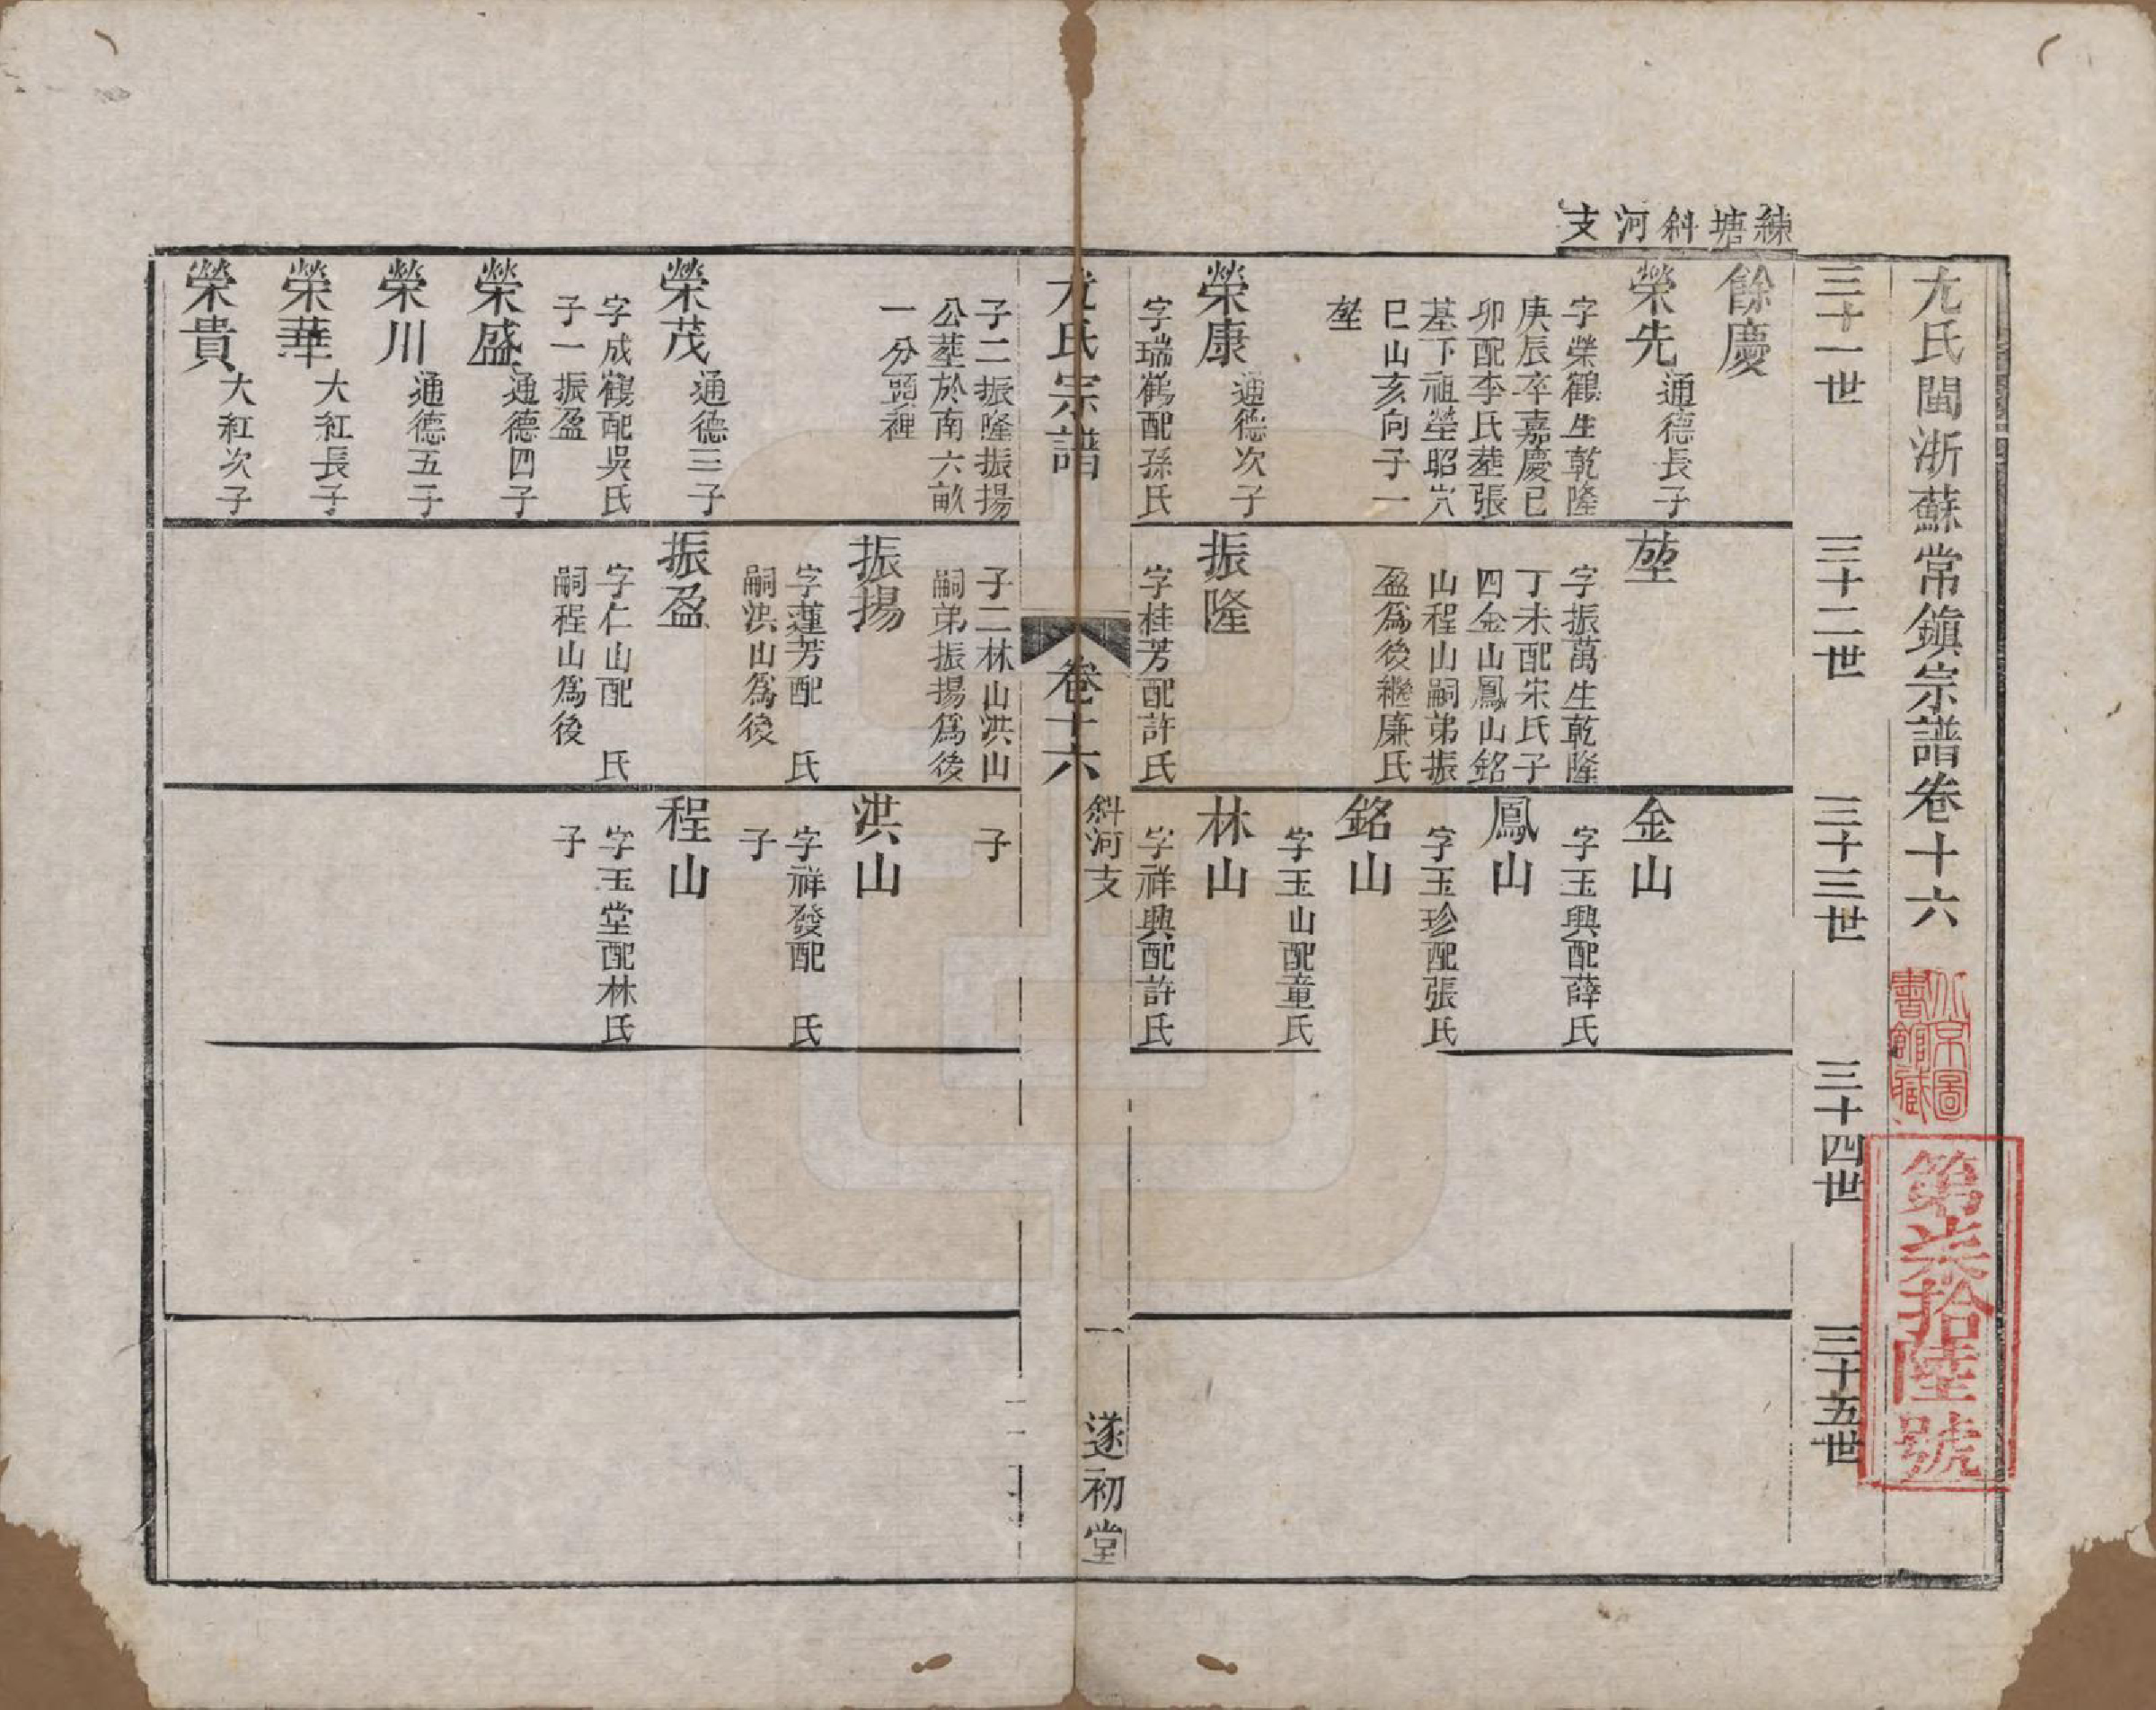 練塘斜河支
尤氏閩浙蘇常鎮宗譜卷十六
北京圖
書館藏
第柒拾陸號
三十一世
三十二世
三十三世
三十四世
三十五世
餘慶
榮先 通德長子
字榮鶴生乾隆
庚辰卒嘉慶已
卯配李氏葬張
基下祖塋昭穴
巳山亥向子一
堃
榮康 通德次子
字瑞鶴配孫氏
堃
字振萬生乾隆
丁未配宋氏子
四金山鳳山銘
山程山嗣弟振
盈爲後繼廉氏
振隆
字桂芳配許氏
金山
字玉興配薛氏
鳳山
字玉珍配張氏
銘山
字玉山配童氏
林山
字祥興配許氏
尤氏宗譜
卷十六
斜河支
一
遂初堂
子二振隆振揚
公葬於南六畝
一分頭裡
榮茂 通德三子
字成鶴配吳氏
子一振盈
榮盛 通德四子
榮川 通德五子
榮華 大紅長子
榮貴 大紅次子
子二林山洪山
嗣弟振揚爲後
振揚
字蓮芳配 氏
嗣洪山爲後
振盈
字仁山配 氏
嗣程山爲後
子
洪山
字祥發配 氏
子
程山
字玉堂配林氏
子